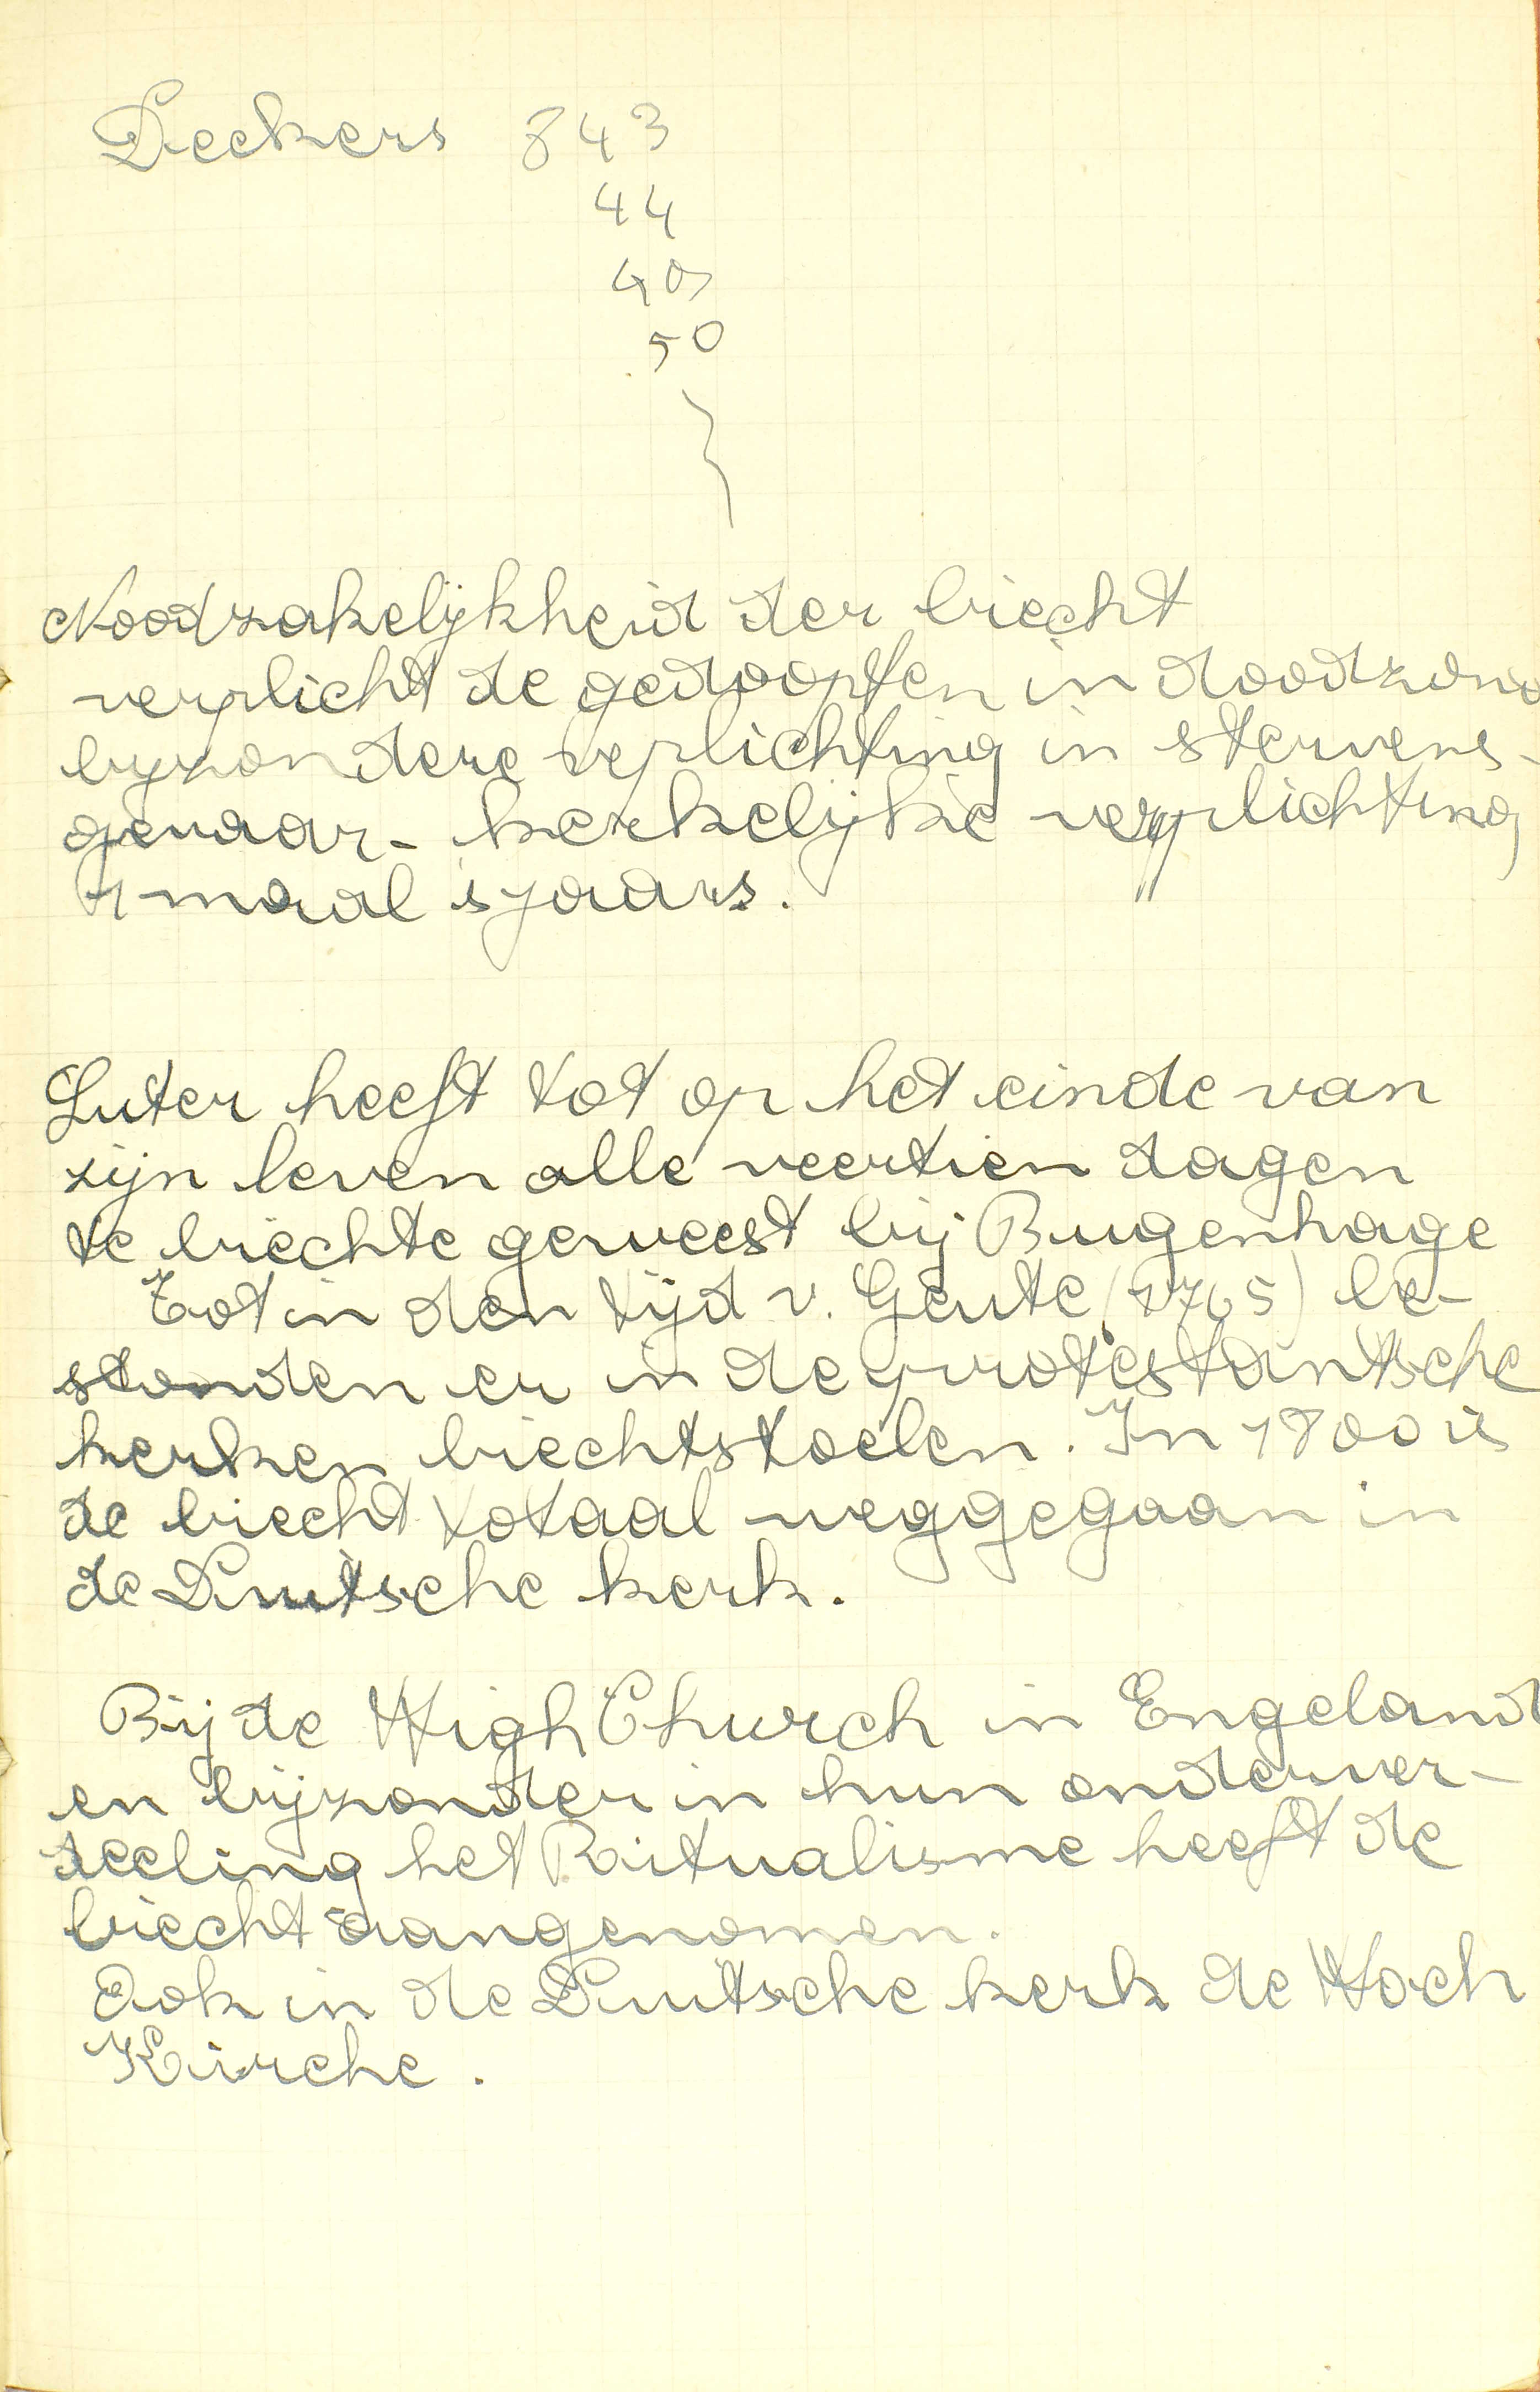 Deckers 843
44
40
50
Noodzakelijkheid der biecht
verplicht de gedoopten in doodzond
byzondere veplichting in stervens-
gevaar - kerkelijke verplichting
1 maal 's jaars.
Luter heeft tot op het einde van
zijn leven alle veertien dagen
te biechte geweest bij Bugenhage
Tot in den tijd v. Geute (1765) be-
stonden er in de protestantsche
kerken biechtstoelen. In 1800 is
de biecht totaal weggegaan in
de Duitsche kerk.
Bij de High Church in Engeland
en bijzonder in hun onderver-
deeling het Ritualisme heeft de
biecht aangenomen.
Ook in de Duitsche kerk de Hoch
Kirche.